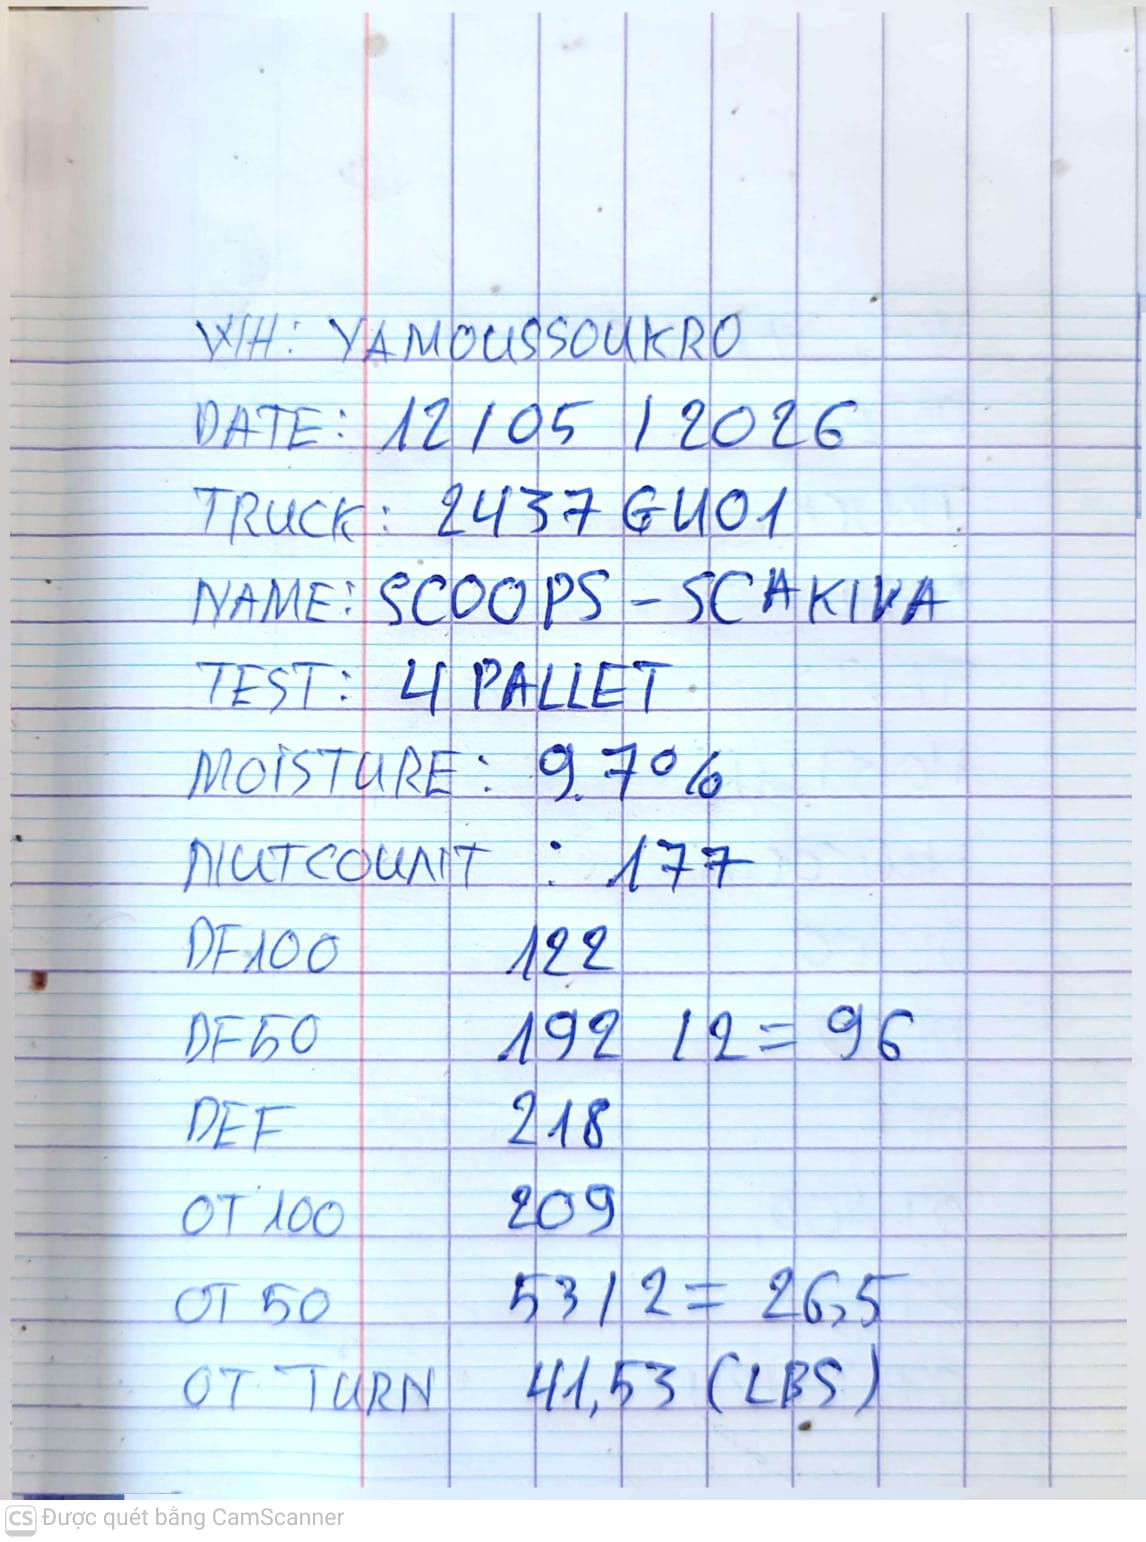 W/H: YAMOUSSOUKRO
DATE: 12/05/2026
TRUCK: 2437GU01
NAME: SCOOPS-SCAKIVA
TEST: 4 PALLET
MOISTURE: 9.7%
NUTCOUNT : 177
DF100 122
DF50 192 /2= 96
DEF 218
OT 100 209
OT 50 53/2= 26,5
OT TURN 41,53 (LBS)
CS Được quét bằng CamScanner